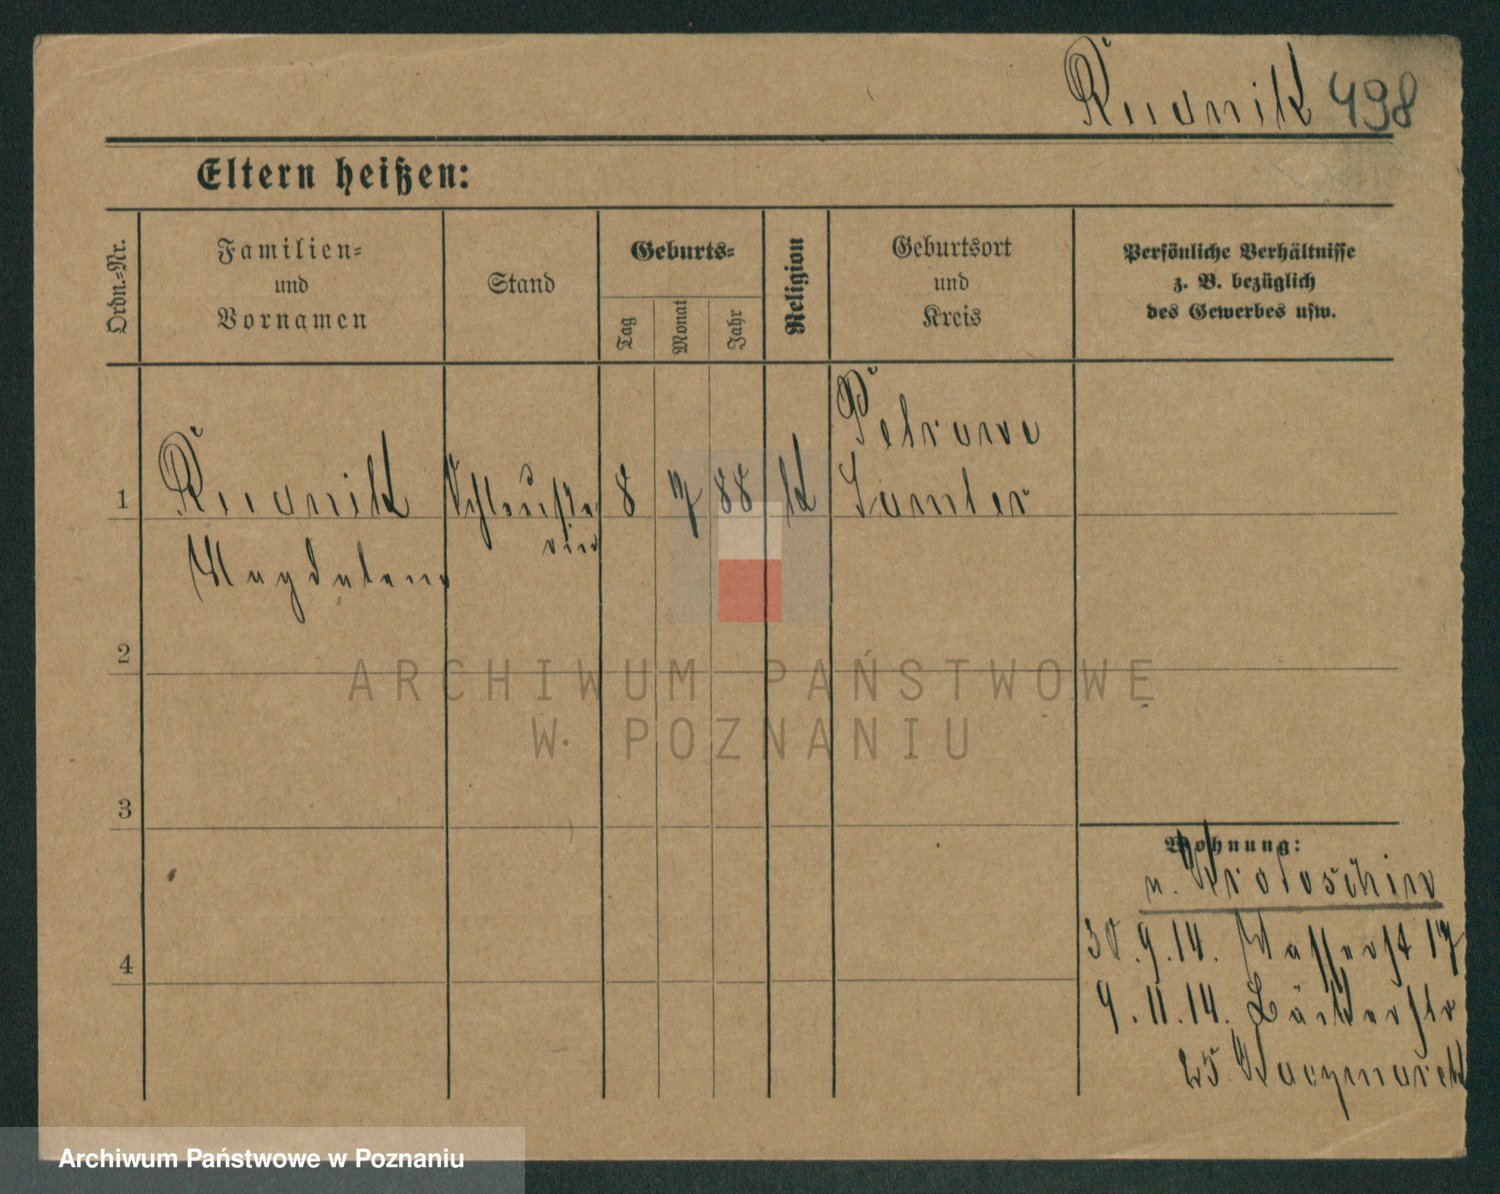 Rudnik 498
Eltern heißen:
Ordn.-Nr.
Familien-
und
Vornamen
Stand
Geburts-
Tag
Monat
Jahr
Religion
Geburtsort
und
Kreis
Persönliche Verhältnisse
z. B. bezüglich
des Gewerbes usw.
Petrowo
1 Rudnik 8 7 88 k Samter
Magdalena
2
3
4
Wohnung:
n. Krotoschin
30.9.14. Wasserst 17
9.11.14. Bäckerstr
25 Kaczmarek
ARCHIWUM PAŃSTWOWE
W POZNANIU
Archiwum Państwowe w Poznaniu